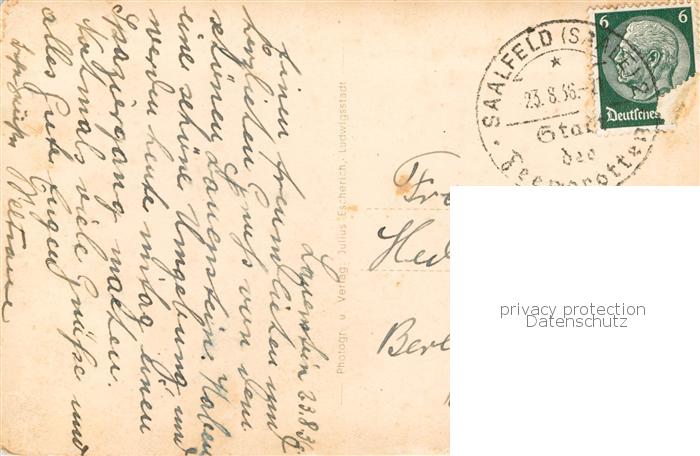 Lauenstein 23.8.36
Einen freundlichen und
herzlichen Gruß von dem
schönen Lauenstein. Haben
eine schöne Umgebung und
werden heute mittag einen
Spaziergang machen.
Nochmals viele Grüße und
alles Gute
Photogr. u. Verlag: Julius Escherich, Ludwigsstadt
SAALFELD (SAALE) 2
23.8.36
Stadt
der
Feengrotten
6 6
Deutsches
Fr
Hed
Berl
privacy protection
Datenschutz